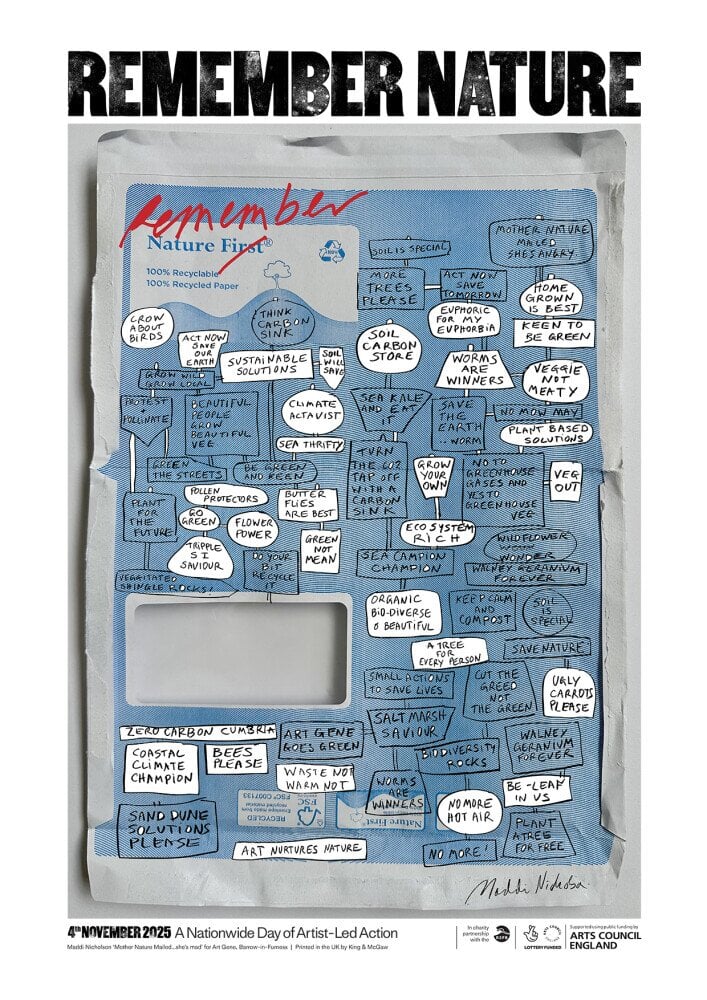 REMEMBER NATURE
Remember
Nature First®
100% Recyclable
100% Recycled Paper
CROW
ABOUT
BIRDS
ACT NOW
SAVE
OUR
EARTH
THINK
CARBON
SINK
SUSTAINABLE
SOLUTIONS
SOIL
WILL
SAVE
GROW WILD
GROW LOCAL
PROTEST
+
POLLINATE
BEAUTIFUL
PEOPLE
GROW
BEAUTIFUL
VEG
CLIMATE
ACTAVIST
SEA THRIFTY
GREEN
THE STREETS
BE GREEN
AND KEEN
POLLEN
PROTECTORS
BUTTER
FLIES
ARE BEST
PLANT
FOR
THE
FUTURE
GO
GREEN
FLOWER
POWER
GREEN
NOT
MEAN
TRIPPLE
S I
SAVIOUR
DO YOUR
BIT
RECYCLE
IT
VEGGITATED
SHINGLE ROCKS!
SOIL IS SPECIAL
MOTHER NATURE
MAILED
SHE'S ANGRY
MORE
TREES
PLEASE
ACT NOW
SAVE
TOMORROW
HOME
GROWN
IS BEST
EUPHORIC
FOR MY
EUPHORBIA
KEEN TO
BE GREEN
SOIL
CARBON
STORE
WORMS
ARE
WINNERS
VEGGIE
NOT
MEATY
SEA KALE
AND EAT
IT
SAVE
THE
EARTH
.. WORM
NO MOW MAY
PLANT BASED
SOLUTIONS
TURN
THE CO2
TAP OFF
WITH A
CARBON
SINK
GROW
YOUR
OWN
NO TO
GREENHOUSE
GASES AND
YES TO
GREENHOUSE
VEG
VEG
OUT
ECO SYSTEM
RICH
WILDFLOWER
WONDER
SEA CAMPION
CHAMPION
WALNEY GERANIUM
FOREVER
ORGANIC
BIO-DIVERSE
& BEAUTIFUL
KEEP CALM
AND
COMPOST
SOIL
IS
SPECIAL
A TREE
FOR
EVERY PERSON
SAVE NATURE
SMALL ACTIONS
TO SAVE LIVES
CUT THE
GREED
NOT
THE GREEN
UGLY
CARROTS
PLEASE
SALT MARSH
SAVIOUR
BIODIVERSITY
ROCKS
WALNEY
GERANIUM
FOREVER
ZERO CARBON CUMBRIA
ART GENE
GOES GREEN
COASTAL
CLIMATE
CHAMPION
BEES
PLEASE
WASTE NOT
WARM NOT
WORMS
ARE
WINNERS
NO MORE
HOT AIR
BE-LEAF
IN US
SAND DUNE
SOLUTIONS
PLEASE
RECYCLED
Envelope made from
recycled material
FSC® C007133
FSC
Nature First
PLANT
A TREE
FOR FREE
NO MORE!
ART NURTURES NATURE
Maddi Nicholson
4th NOVEMBER 2025 A Nationwide Day of Artist-Led Action
Maddi Nicholson 'Mother Nature Mailed...she's mad' for Art Gene, Barrow-in-Furness | Printed in the UK by King & McGaw
In charity
partnership
with the
LOTTERY FUNDED
Supported using public funding by
ARTS COUNCIL
ENGLAND